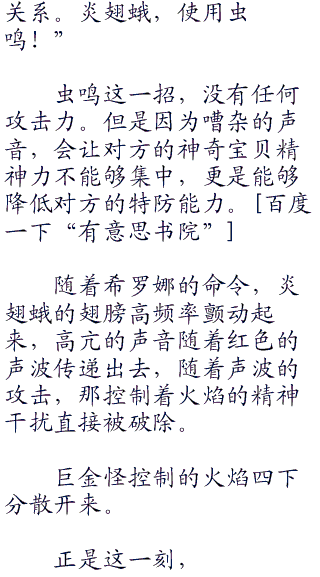 关系。炎翅蛾，使用虫
鸣！”
虫鸣这一招，没有任何
攻击力。但是因为嘈杂的声
音，会让对方的神奇宝贝精
神力不能够集中，更是能够
降低对方的特防能力。[百度
一下“有意思书院”]
随着希罗娜的命令，炎
翅蛾的翅膀高频率颤动起
来，高亢的声音随着红色的
声波传递出去，随着声波的
攻击，那控制着火焰的精神
干扰直接被破除。
巨金怪控制的火焰四下
分散开来。
正是这一刻，